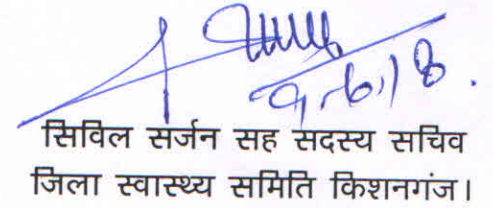 सिविल सर्जन सह सदस्य सचिव
जिला स्वास्थ्य समिति किशनगंज।